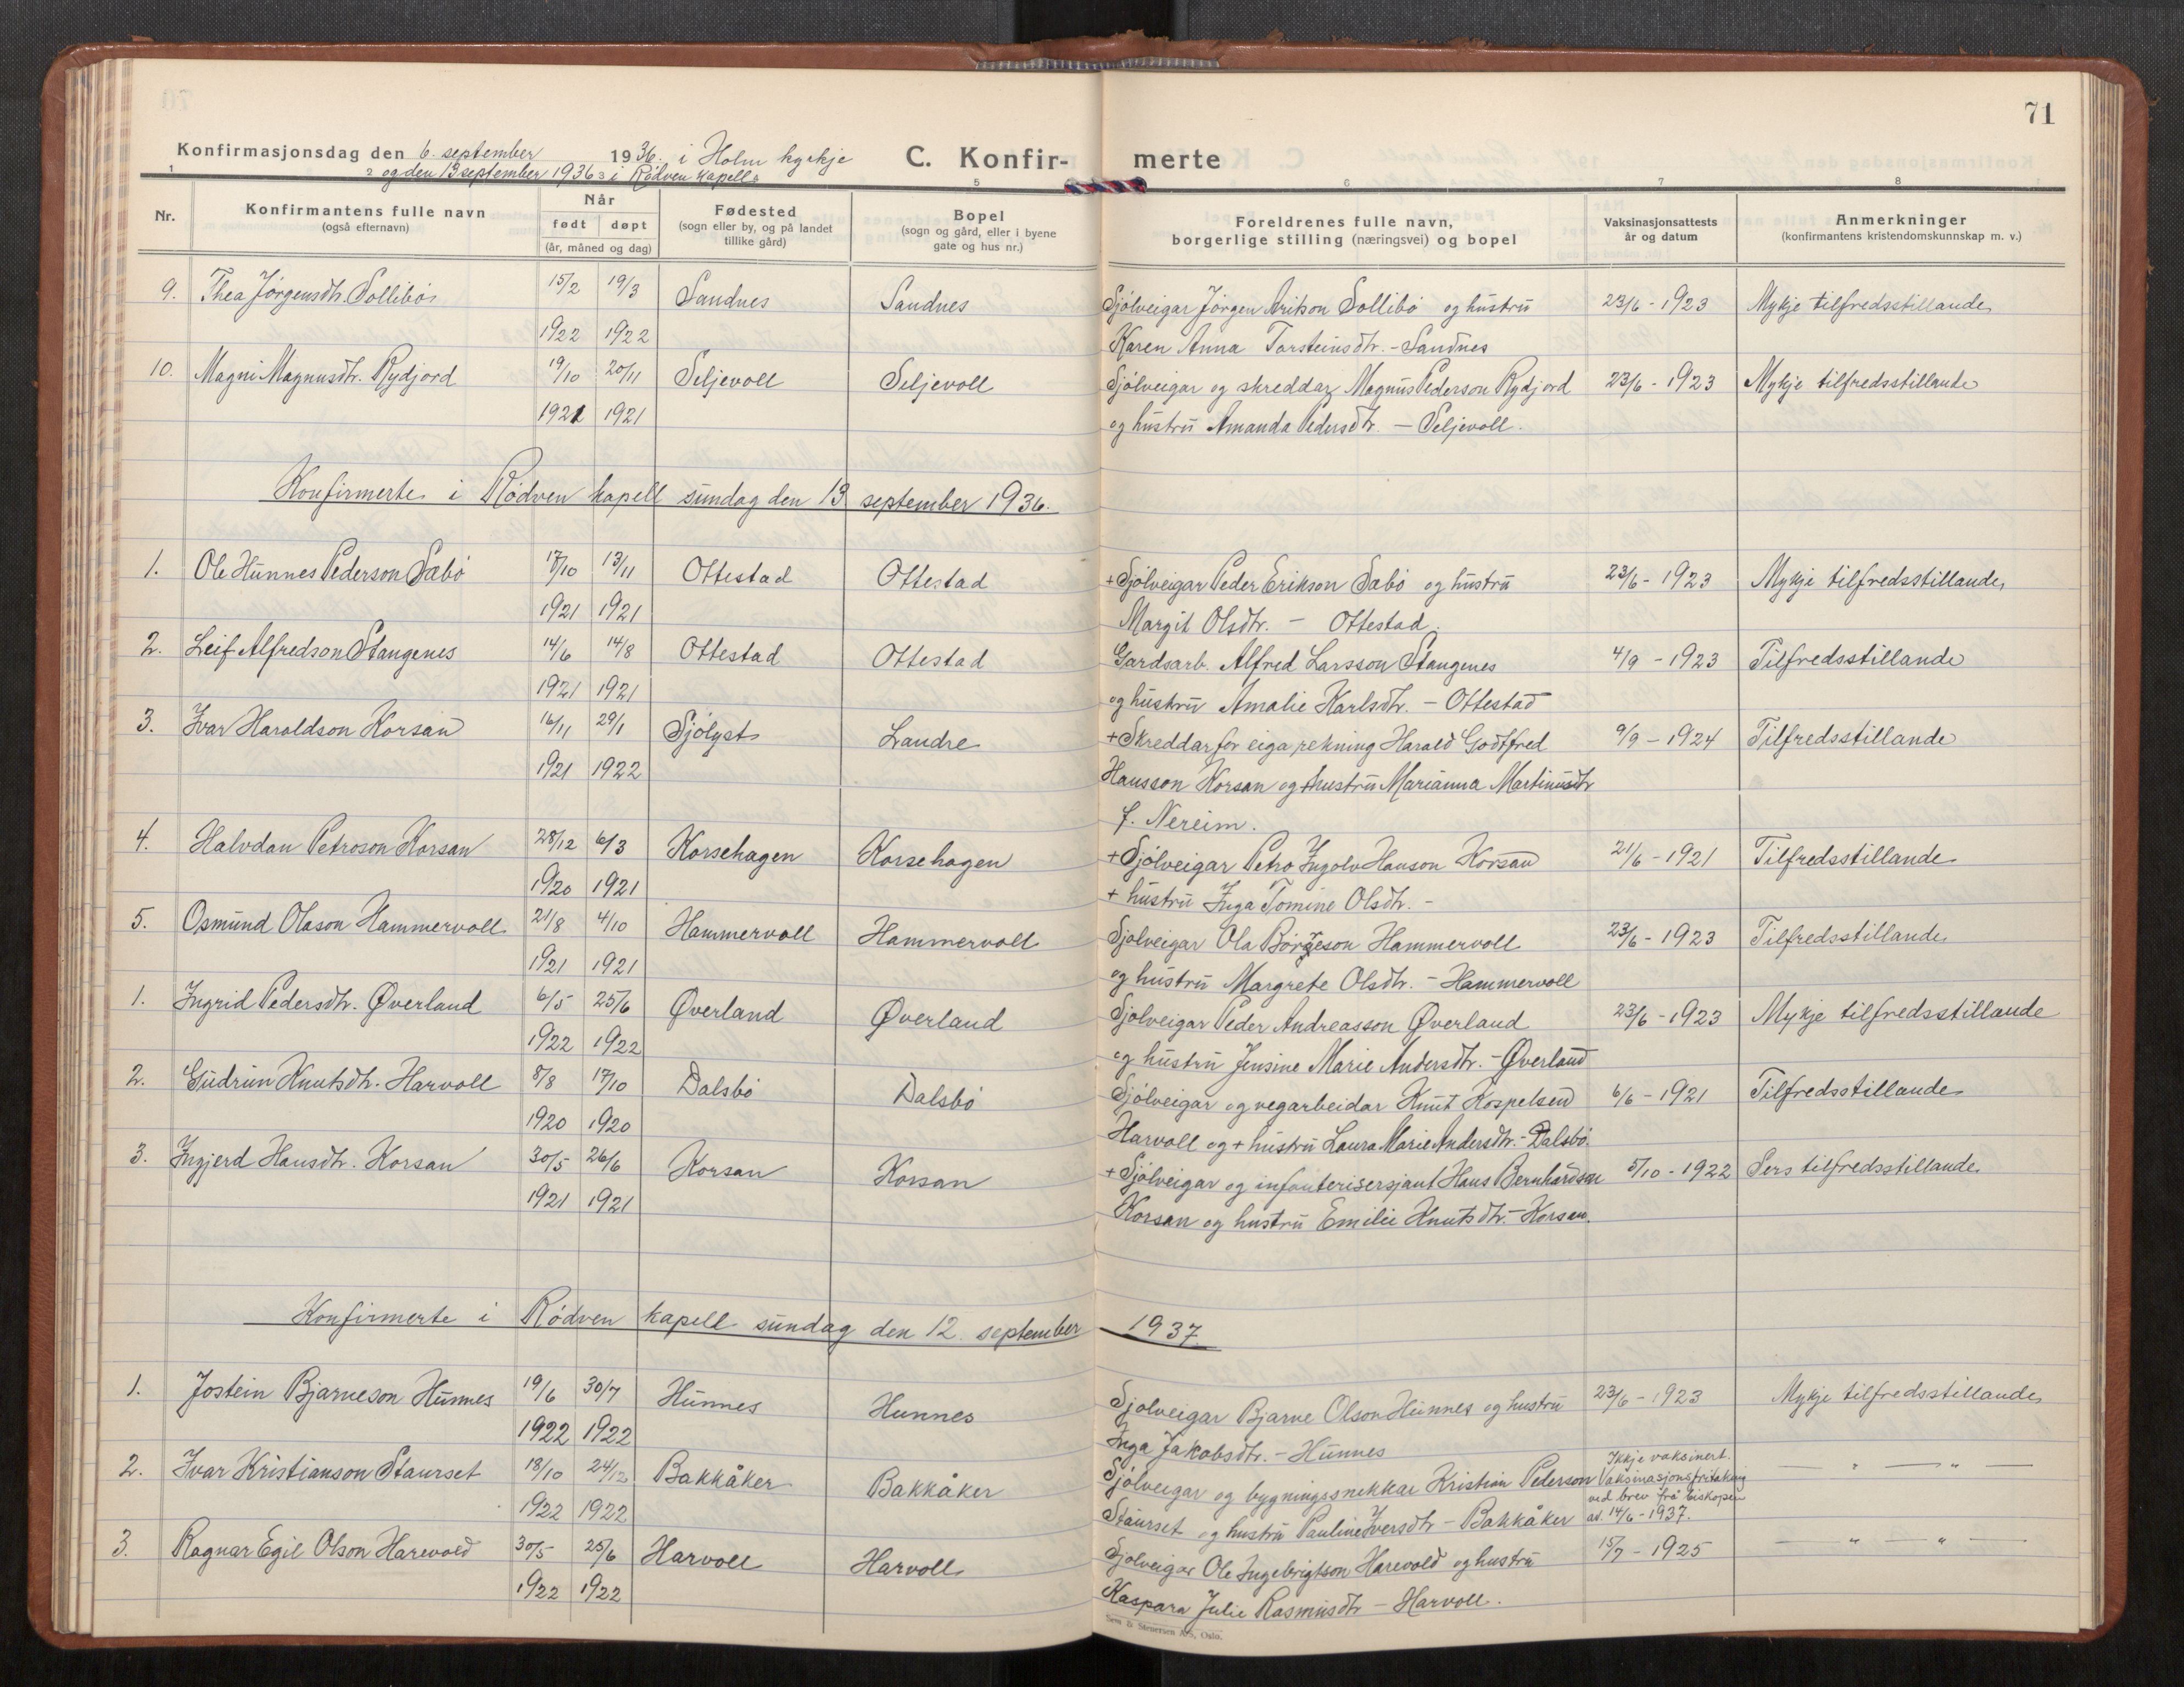 71
Konfirmasjonsdag den 6. september 1936. i Holm kyrkje
og den 13 september 1936 i Rødven kapell
C. Konfir- merte
1 2 3 4 5 6 7 8
Nr.
Konfirmantens fulle navn
(også efternavn)
Når
født døpt
(år, måned og dag)
Fødested
(sogn eller by, og på landet
tillike gård)
Bopel
(sogn og gård, eller i byene
gate og hus nr.)
Foreldrenes fulle navn,
borgerlige stilling (næringsvei) og bopel
Vaksinasjonsattests
år og datum
Anmerkninger
(konfirmantens kristendomskunnskap m. v.)
9. Thea Jörgensdtr. Sollibö 15/2 19/3 Sandnes Sandnes Sjölveigar Jörgen Arikson Sollibö og hustru 23/6 - 1923 Mykje tilfredsstillande
1922 1922 Karen Anna Torsteinsdtr. - Sandnes
10. Magni Magnusdtr. Rydjord 19/10 20/11 Seljevoll Seljevoll Sjölveigar og skreddar Magnus Pederson Rydjord 23/6 - 1923 Mykje tilfredsstillande
1921 1921 og hustru Amanda Pedersdtr. - Seljevoll.
Konfirmerte i Rödven kapell sundag den 13 september 1936.
1. Ole Hunnes Pederson Sæbö 17/10 13/11 Ottestad Ottestad + Sjölveigar Peder Erikson Sæbö og hustru 23/6 - 1923 Mykje tilfredsstillande
1921 1921 Margit Olsdtr. - Ottestad.
2. Leif Alfredson Stangenes 14/6 14/8 Ottestad Ottestad Gardsarb. Alfred Larsson Stangenes 4/9 - 1923 Tilfredsstillande
1921 1921 og hustru Amalie Karlsdtr. - Ottestad
3. Ivar Haroldson Korsan 16/11 29/1 Sjölyst Landre + Skreddar for eiga rekning Harald Godtfred 9/9 - 1924 Tilfredsstillande
1921 1922 Hansson Korsan og hustru Marianna Martinusdtr
f. Nereim.
4. Halvdan Petroson Korsan 28/12 6/3 Korsehagen Korsehagen + Sjölveigar Petro Ingolv Hanson Korsan 21/6 - 1921 Tilfredsstillande
1920 1921 + hustru Inga Tomine Olsdtr. -
5. Osmund Olason Hammervoll 21/8 4/10 Hammervoll Hammervoll Sjölveigar Ola Börgeson Hammervoll 23/6 - 1923 Tilfredsstillande
1921 1921 og hustru Margrete Olsdtr. - Hammervoll
1. Ingrid Pedersdtr. Øverland 6/5 25/6 Øverland Øverland Sjölveigar Peder Andreasson Øverland 23/6 - 1923 Mykje tilfredsstillande
1922 1922 og hustru Jensine Marie Andersdtr. - Øverland
2. Gudrun Knutsdtr. Harvoll 8/8 17/10 Dalsbö Dalsbö Sjölveigar og vegarbeidar Knut Kospelsen 6/6 - 1921 Tilfredsstillande
1920 1920 Harvoll og + hustru Laura Marie Andersdtr. - Dalsbö
3. Ingjerd Hansdtr. Korsan 30/5 26/6 Korsan Korsan + Sjölveigar og infanterisersjant Hans Bernhardsen 5/10 - 1922 Sers tilfredsstillande
1921 1921 Korsan og hustru Emilie Knutsdtr. - Korsan.
Konfirmerte i Rödven kapell sundag den 12. september 1937
1. Jostein Bjarneson Hunnes 19/6 30/7 Hunnes Hunnes Sjölveigar Bjarne Olson Hunnes og hustru 23/6 - 1923 Mykje tilfredsstillande
1922 1922 Inga Jakobsdtr. - Hunnes
2. Ivar Kristianson Staurset 18/10 24/12 Bakkåker Bakkåker Sjölveigar og bygningssnekkar Kristian Pederson Ikkje vaksinert. Vaksinasjonsfritaking ved brev frå biskopen av. 14/6 - 1937. — " — " —
1922 1922 Staurset og hustru Pauline Iversdtr - Bakkåker
3. Ragnar Egil Olson Harevold 30/5 25/6 Harvoll Harvoll Sjölveigar Ole Ingebrigtson Harevold og hustru 15/7 - 1925 — " — " —
1922 1922 Kaspara Julie Rasmusdtr - Harvoll.
Sem & Stenersen A/S, Oslo.